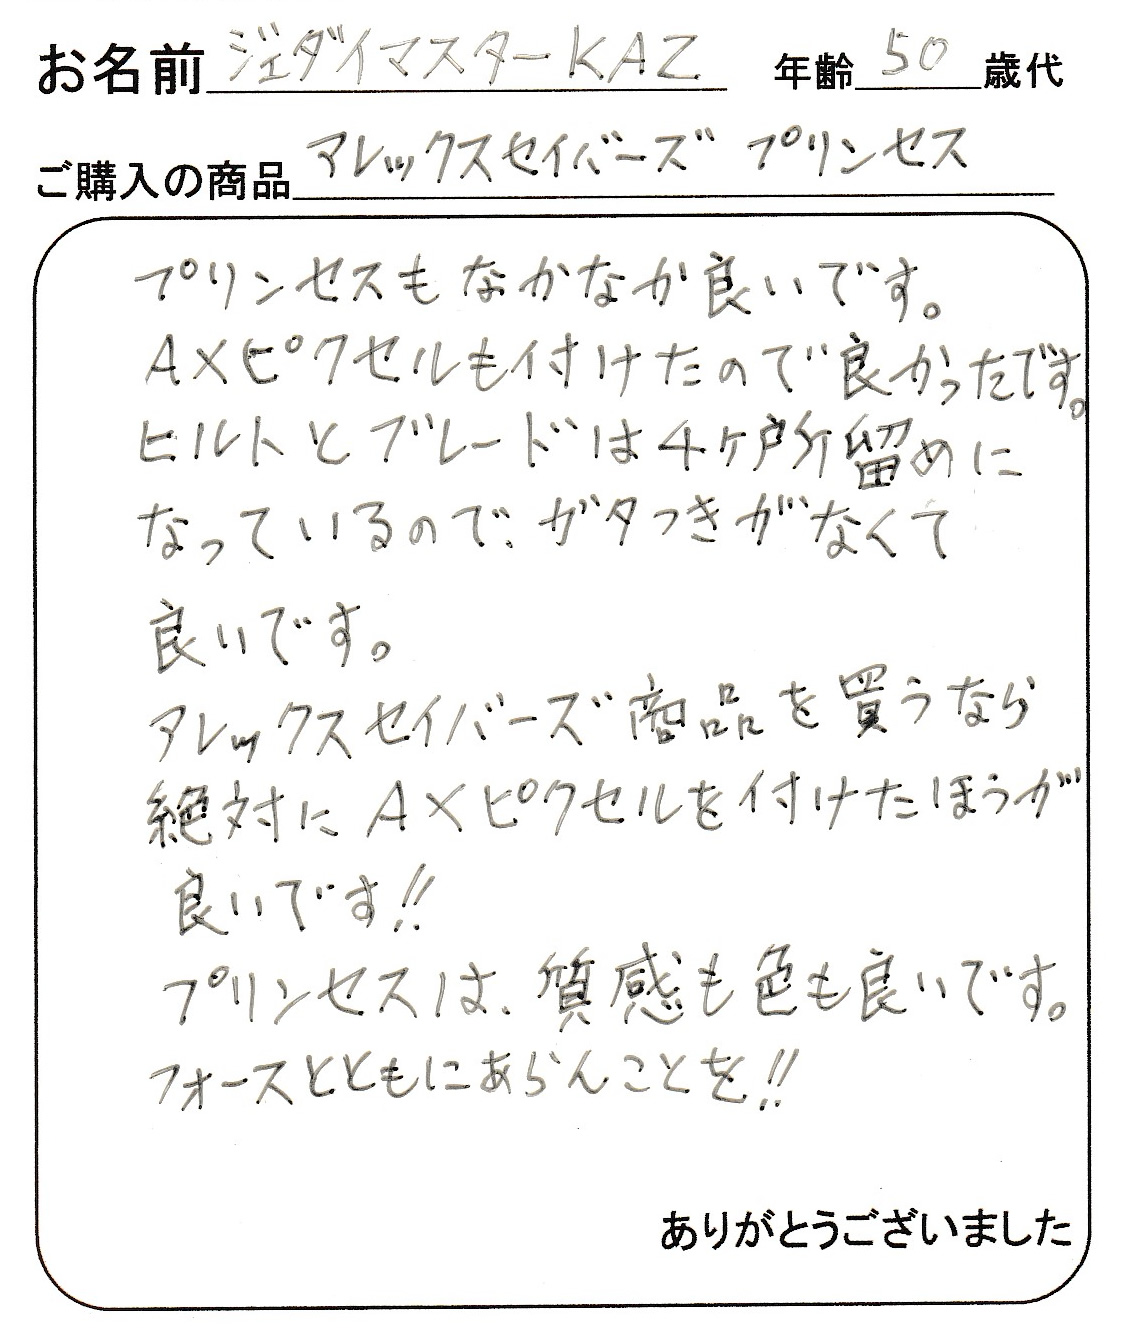 お名前 ジェダイマスターKAZ 年齢 50 歳代
ご購入の商品 アレックスセイバーズ プリンセス
プリンセスもなかなか良いです。
AXピクセルも付けたので良かったです。
ヒルトとブレードは4ヶ所留めに
なっているので、ガタつきがなくて
良いです。
アレックスセイバーズ商品を買うなら
絶対にAXピクセルを付けたほうが
良いです!!
プリンセスは、質感も色も良いです。
フォースとともにあらんことを!!
ありがとうございました